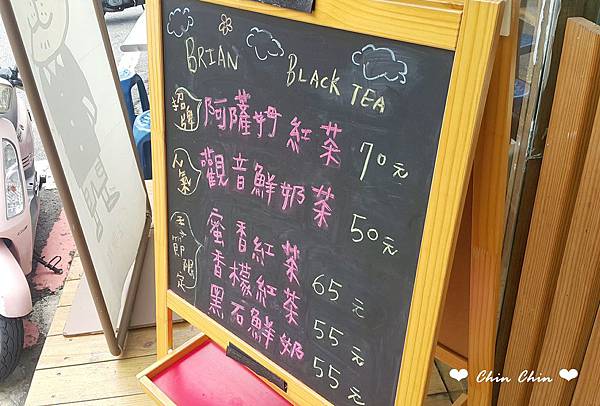 BRIAN BLACK TEA
招牌 阿薩姆紅茶 70元
人氣 觀音鮮奶茶 50元
季節限定 蜜香紅茶 65元
香檬紅茶 55元
黑石鮮奶 55元
❤ Chin Chin ❤